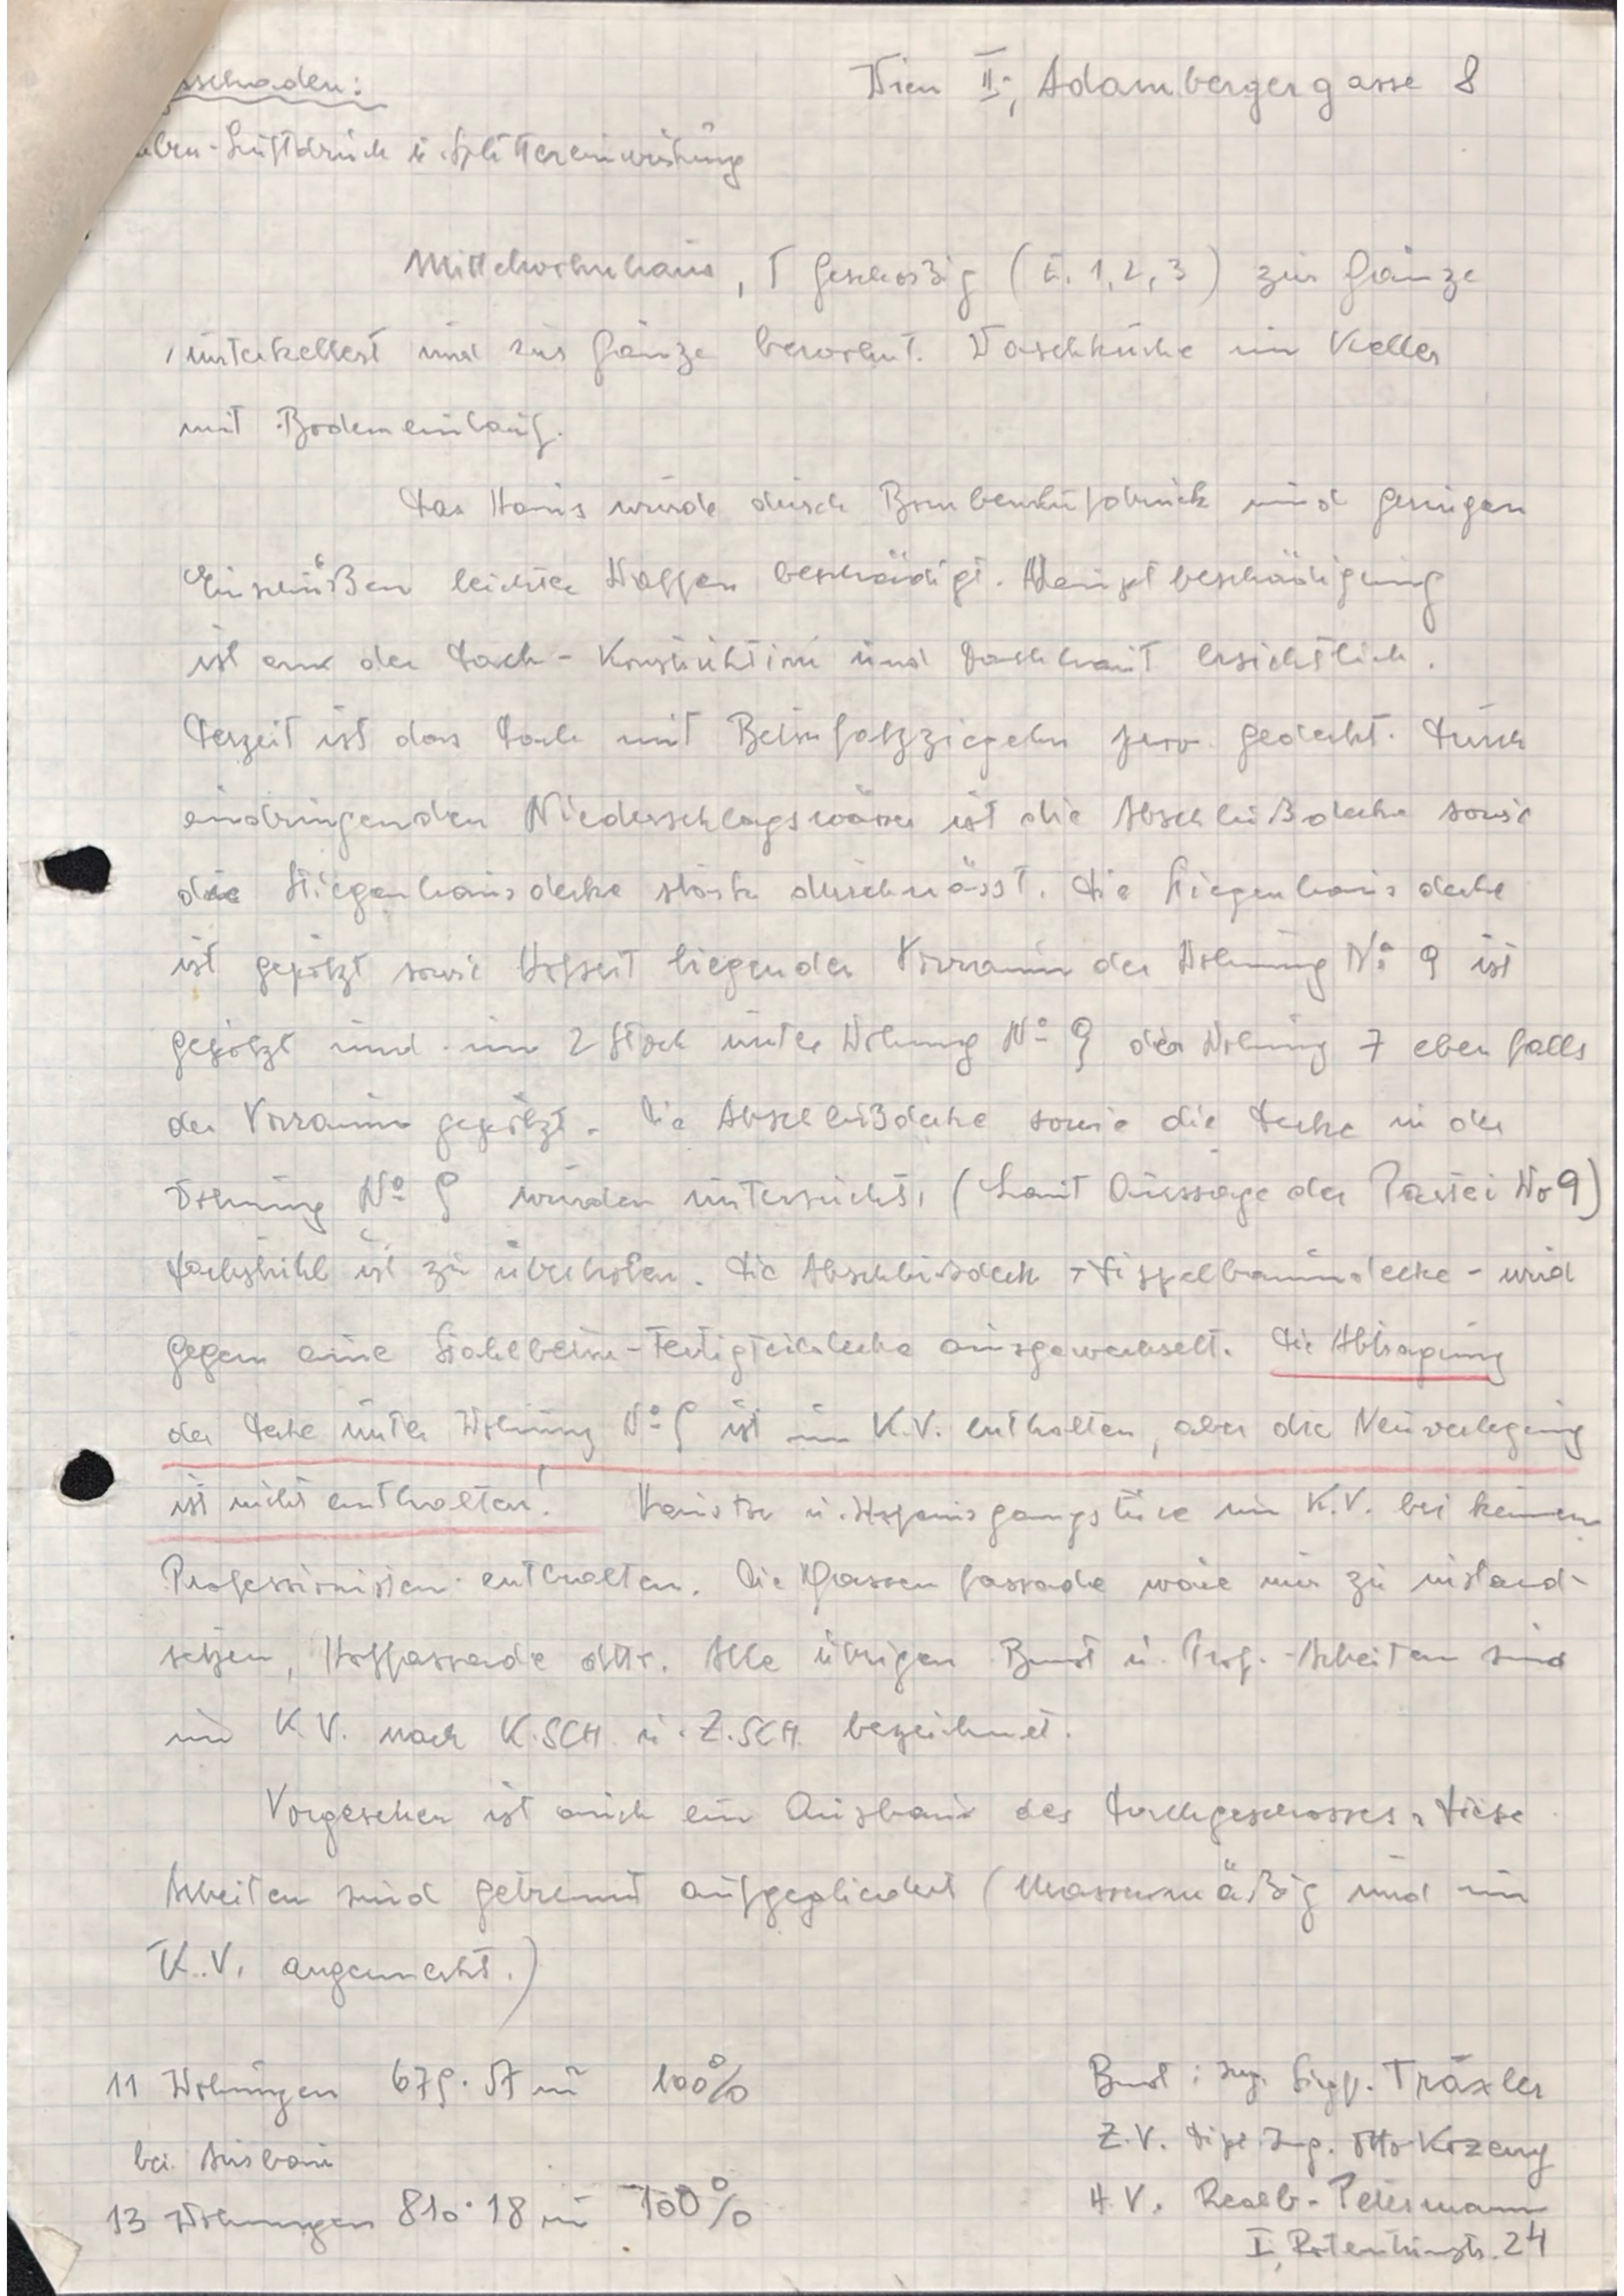 sschaden:
Wien II., Adambergergasse 8
ben-Luftdruck u. Splittereinwirkung
Mittelwohnhaus, geschoßig (E. 1, 2, 3) zur Gänze
unterkellert und zur Gänze bewohnt. Waschküche im Keller
mit Bodeneinlauf.
Das Haus wurde durch Bombenluftdruck und geringen
Einschüßen leichter Waffen beschädigt. Hauptbeschädigung
ist an der Dach-Konstruktion und Dachhaut ersichtlich.
Derzeit ist das Dach mit Betonfalzziegeln prov. gedeckt. Durch
eindringenden Niederschlagswässer ist die Abschlußdecke sowie
die Stiegenhausdecke stark durchnässt. Die Stiegenhausdecke
ist gepölzt sowie Hofseit liegender Vorraum der Wohnung No 9 ist
gepölzt und im 2 Stock unter Wohnung No 9 der Wohnung 7 ebenfalls
der Vorraum gepölzt. Die Abschlußdecke sowie die Decke in der
Wohnung No 9 wurden untersucht, (Laut Aussage der Partei No 9)
Dachstuhl ist zu überholen. Die Abschlußdecke - Dippelbaumdecke - wird
gegen eine Stahlbeton-Fertigteildecke ausgewechselt. Die Abtragung
der Decke unter Wohnung No 9 ist im K.V. enthalten, aber die Neuverlegung
ist nicht enthalten! Haustor u. Hofausgangstüre im K.V. bei keinen
Professionisten enthalten. Die Gassenfassade wäre nur zu instand-
setzen, Hoffassade dtto. Alle übrigen Bmst u. Prof.-Arbeiten sind
im K.V. nach K.SCH u. Z.SCH. bezeichnet.
Vorgesehen ist auch ein Ausbau des Dachgeschosses, diese
Arbeiten sind getrennt aufgegliedert (Massenmäßig und im
K.V. angemerkt.)
11 Wohnungen 679.57 m² 100%
bei Ausbau
13 Wohnungen 810.18 m² 100%
Bmst: Ing. Siegf. Träxler
Z.V. Dipl. Ing. Otto
H.V. Realb. Petersmann
I., Rotenturmstr. 24